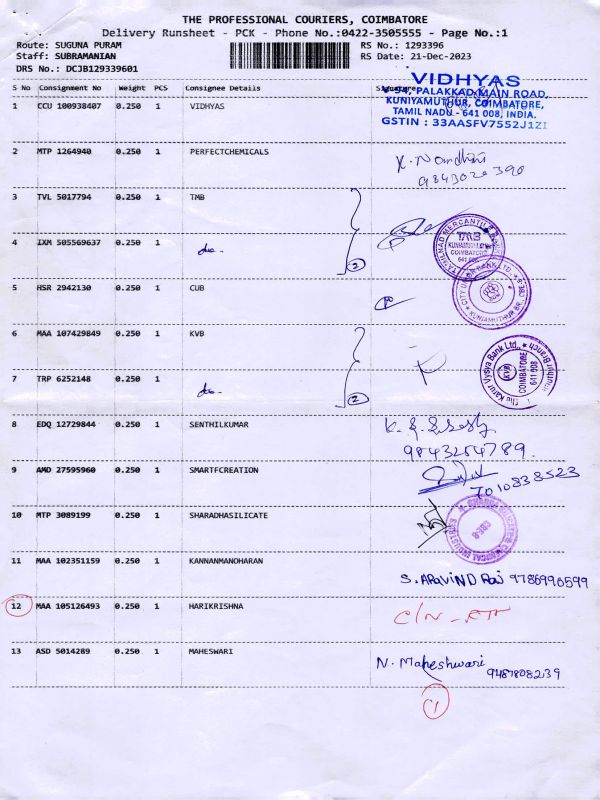 THE PROFESSIONAL COURIERS, COIMBATORE
Delivery Runsheet - PCK - Phone No.:0422-3505555 - Page No.:1
Route: SUGUNA PURAM RS No.: 1293396
Staff: SUBRAMANIAN RS Date: 21-Dec-2023
DRS No.: DCJB129339601
S No Consignment No Weight PCS Consignee Details Signature
VIDHYAS
PALAKKAD MAIN ROAD,
KUNIYAMUTHUR, COIMBATORE,
TAMIL NADU - 641 008, INDIA.
GSTIN : 33AASFV7552J1ZI
1 CCU 100938407 0.250 1 VIDHYAS
2 MTP 1264940 0.250 1 PERFECTCHEMICALS K. Nandhini
9843020390
3 TVL 5017794 0.250 1 TMB
4 IXM 505569637 0.250 1 do 2
TAMILNAD MERCANTILE BANK
TMB
COIMBATORE
641 008
5 HSR 2942130 0.250 1 CUB
CITY UNION BANK LTD.,
KUNIAMUTHUR BR.
6 MAA 107429849 0.250 1 KVB
7 TRP 6252148 0.250 1 do 2
The Karur Vysya Bank Ltd.,
KVB
COIMBATORE
641 008
8 EDQ 12729844 0.250 1 SENTHILKUMAR
9843254789.
9 AMD 27595960 0.250 1 SMARTFCREATION
7010838523
10 MTP 3089199 0.250 1 SHARADHASILICATE
11 MAA 102351159 0.250 1 KANNANMANOHARAN
S. ARAVIND Raj 9786990599
12 MAA 105126493 0.250 1 HARIKRISHNA C/N -
13 ASD 5014289 0.250 1 MAHESWARI N. Maheshwari
9487808239
1